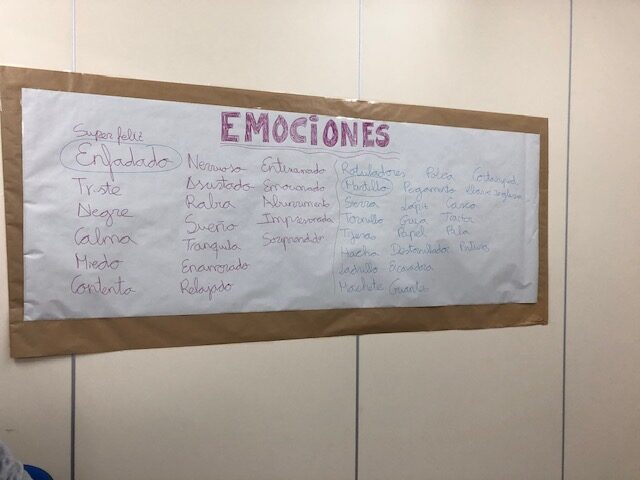 EMOCIONES
Super feliz
Enfadado
Triste
Alegre
Calma
Miedo
Contento
Nervioso
Asustado
Rabia
Sueño
Tranquila
Enamorado
Relajado
Emocionado
Aburrimiento
Impresionada
Sorprendido
Rotuladores
Martillo
Sierra
Tornillo
Tijeras
Hacha
Ladrillo
Machete
Polea
Pegamento
Lápiz
Grúa
Papel
Destornillador
Excavadora
Guantes
llave inglesa
Casco
Pala
Pintura